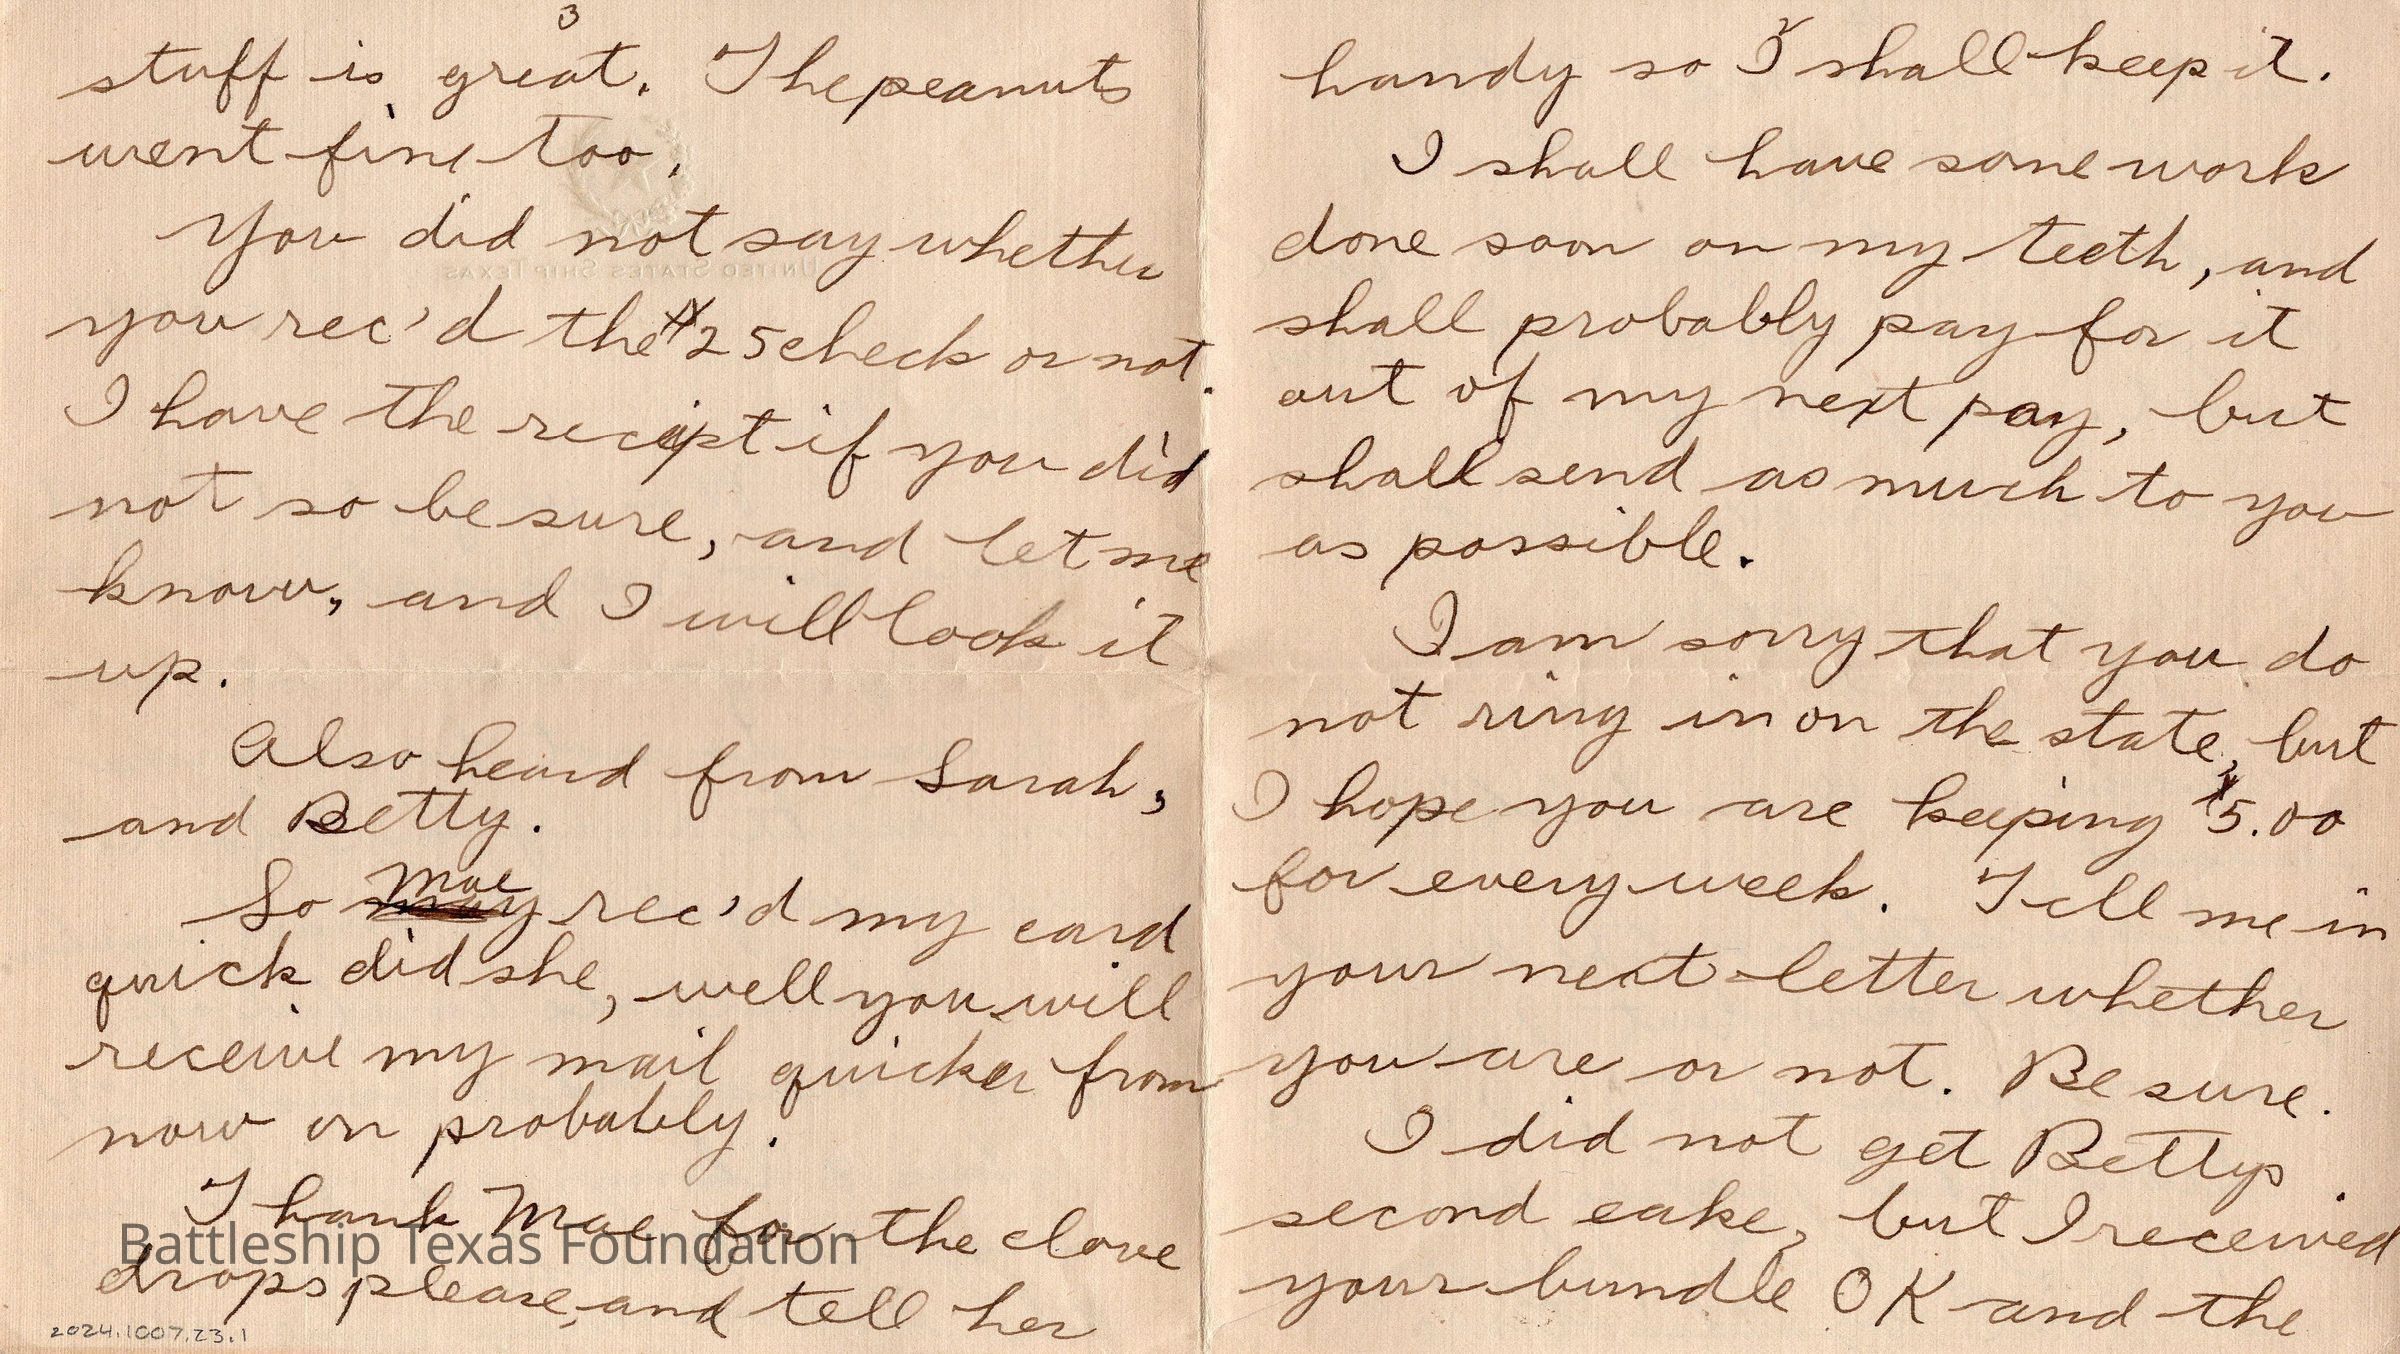 3
stuff is great. The peanuts
went fine too.
You did not say whether
you rec'd the $25 check or not.
I have the receipt if you did
not so be sure, and let me
know, and I will look it
up.
Also heard from Sarah,
and Betty.
So Mae rec'd my card
quick did she, well you will
receive my mail quicker from
now on probably.
Thank Mae for the clove
drops please, and tell her
UNITED STATES SHIP TEXAS
Battleship Texas Foundation
2024.1007.23.1
2
handy so I shall keep it.
I shall have some work
done soon on my teeth, and
shall probably pay for it
out of my next pay, but
shall send as much to you
as possible.
I am sorry that you do
not ring in on the state, but
I hope you are keeping $5.00
for every week. Tell me in
your next letter whether
you are or not. Be sure.
I did not get Bettys
second cake, but I received
your bundle OK and the